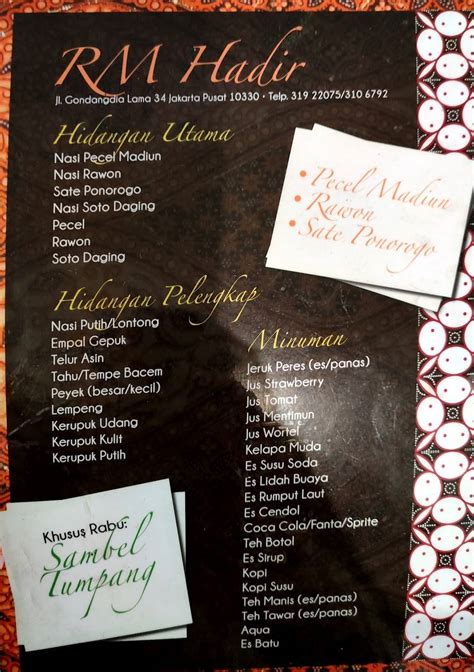 RM Hadir
Jl. Gondangdia Lama 34 Jakarta Pusat 10330 • Telp. 319 22075/310 6792
Hidangan Utama
Nasi Pecel Madiun
Nasi Rawon
Sate Ponorogo
Nasi Soto Daging
Pecel
Rawon
Soto Daging
• Pecel Madiun
• Rawon
• Sate Ponorogo
Hidangan Pelengkap
Nasi Putih/Lontong
Empal Gepuk
Telur Asin
Tahu/Tempe Bacem
Peyek (besar/kecil)
Lempeng
Kerupuk Udang
Kerupuk Kulit
Kerupuk Putih
Minuman
Jeruk Peres (es/panas)
Jus Strawberry
Jus Tomat
Jus Mentimun
Jus Wortel
Kelapa Muda
Es Susu Soda
Es Lidah Buaya
Es Rumput Laut
Es Cendol
Coca Cola/Fanta/Sprite
Teh Botol
Es Sirup
Kopi
Kopi Susu
Teh Manis (es/panas)
Teh Tawar (es/panas)
Aqua
Es Batu
Khusus Rabu:
Sambel
Tumpang